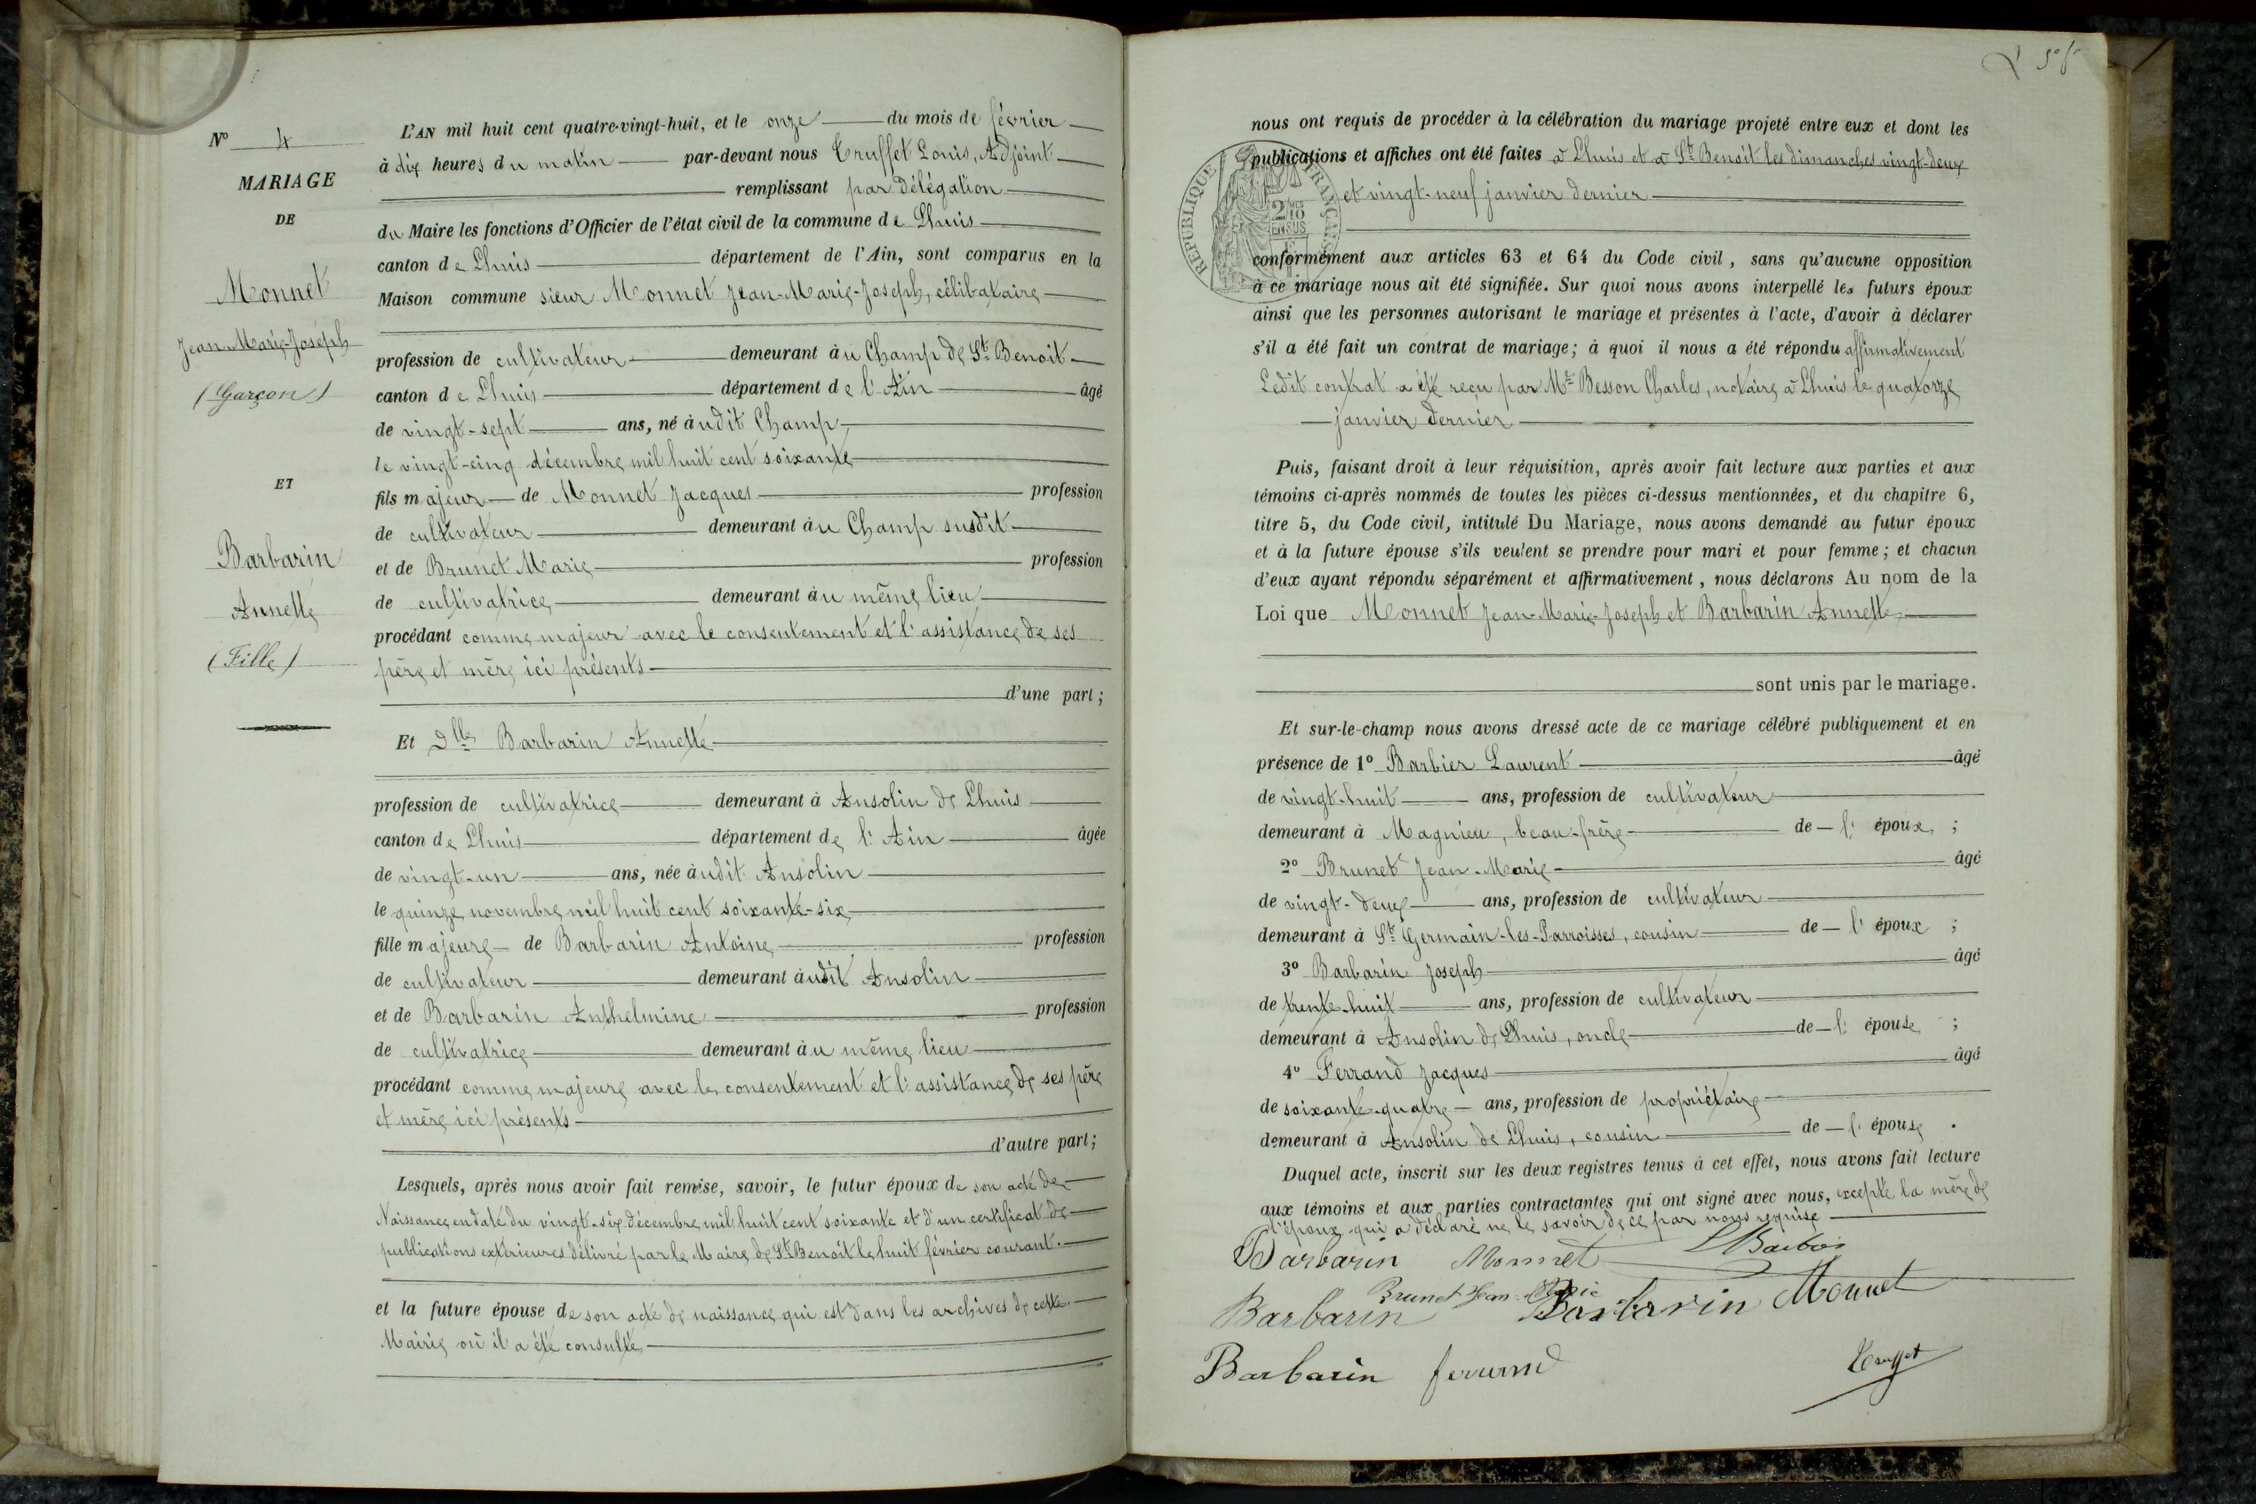 N° 4
MARIAGE
DE
Monnet
Jean-Marie-Joseph
(Garçon)
ET
Barbarin
Annette
(Fille)
L'AN mil huit cent quatre-vingt-huit, et le onze du mois de février
à dix heures du matin par-devant nous Truffet Louis, Adjoint
remplissant par délégation
du Maire les fonctions d'Officier de l'état civil de la commune de Lhuis
canton de Lhuis département de l'Ain, sont comparus en la
Maison commune sieur Monnet Jean-Marie-Joseph, célibataire
profession de cultivateur demeurant àu Champ de St Benoit
canton de Lhuis département de l'Ain âgé
de vingt-sept ans, né àudit Champ,
le vingt-cinq décembre mil huit cent soixante
fils majeur de Monnet Jacques profession
de cultivateur demeurant àu Champ susdit
et de Brunet Marie profession
de cultivatrice demeurant àu même lieu
procédant comme majeur avec le consentement et l'assistance de ses
père et mère ici présents
d'une part;
Et Dlle Barbarin Annette
profession de cultivatrice demeurant à Ansolin de Lhuis
canton de Lhuis département de l'Ain âgée
de vingt-un ans, née àudit Ansolin
le quinze novembre mil huit cent soixante-six
fille majeure de Barbarin Antoine profession
de cultivateur demeurant àudit Ansolin
et de Barbarin Anthelmine profession
de cultivatrice demeurant àu même lieu
procédant comme majeure avec le consentement et l'assistance de ses père
et mère ici présents
d'autre part;
Lesquels, après nous avoir fait remise, savoir, le futur époux de son acte de
Naissance en date du vingt-six décembre mil huit cent soixante et d'un certificat de
publications extérieures délivré par le Maire de St Benoit le huit février courant.
et la future épouse de son acte de naissance qui est dans les archives de cette
Mairie où il a été consulté
nous ont requis de procéder à la célébration du mariage projeté entre eux et dont les
publications et affiches ont été faites à Lhuis et à St Benoit les dimanches vingt-deux
et vingt-neuf janvier dernier
RÉPUBLIQUE FRANÇAISE
2/10 EN SUS
conformément aux articles 63 et 64 du Code civil, sans qu'aucune opposition
à ce mariage nous ait été signifiée. Sur quoi nous avons interpellé les futurs époux
ainsi que les personnes autorisant le mariage et présentes à l'acte, d'avoir à déclarer
s'il a été fait un contrat de mariage; à quoi il nous a été répondu affirmativement
Ledit contrat a été reçu par Me Besson Charles, notaire à Lhuis le quatorze
janvier dernier
Puis, faisant droit à leur réquisition, après avoir fait lecture aux parties et aux
témoins ci-après nommés de toutes les pièces ci-dessus mentionnées, et du chapitre 6,
titre 5, du Code civil, intitulé Du Mariage, nous avons demandé au futur époux
et à la future épouse s'ils veulent se prendre pour mari et pour femme; et chacun
d'eux ayant répondu séparément et affirmativement, nous déclarons Au nom de la
Loi que Monnet Jean-Marie-Joseph et Barbarin Annette
sont unis par le mariage.
Et sur-le-champ nous avons dressé acte de ce mariage célébré publiquement et en
présence de 1° Barbier Laurent âgé
de vingt-huit ans, profession de cultivateur
demeurant à Magnieu, beau-frère de l'époux;
2° Brunet Jean-Marie âgé
de vingt-deux ans, profession de cultivateur
demeurant à St Germain-les-Parroisses, cousin de l'époux;
3° Barbarin Joseph âgé
de trente-huit ans, profession de cultivateur
demeurant à Ansolin de Lhuis, oncle de l'épouse;
4° Ferrand Jacques âgé
de soixante-quatre ans, profession de propriétaire
demeurant à Ansolin de Lhuis, cousin de l'épouse.
Duquel acte, inscrit sur les deux registres tenus à cet effet, nous avons fait lecture
aux témoins et aux parties contractantes qui ont signé avec nous, excepté la mère de
l'époux qui a déclaré ne le savoir de ce par nous requise
Barbarin Monnet
Brunet Jean Marie
Barbarin Barbarin Monnet
Barbarin ferrand Truffet